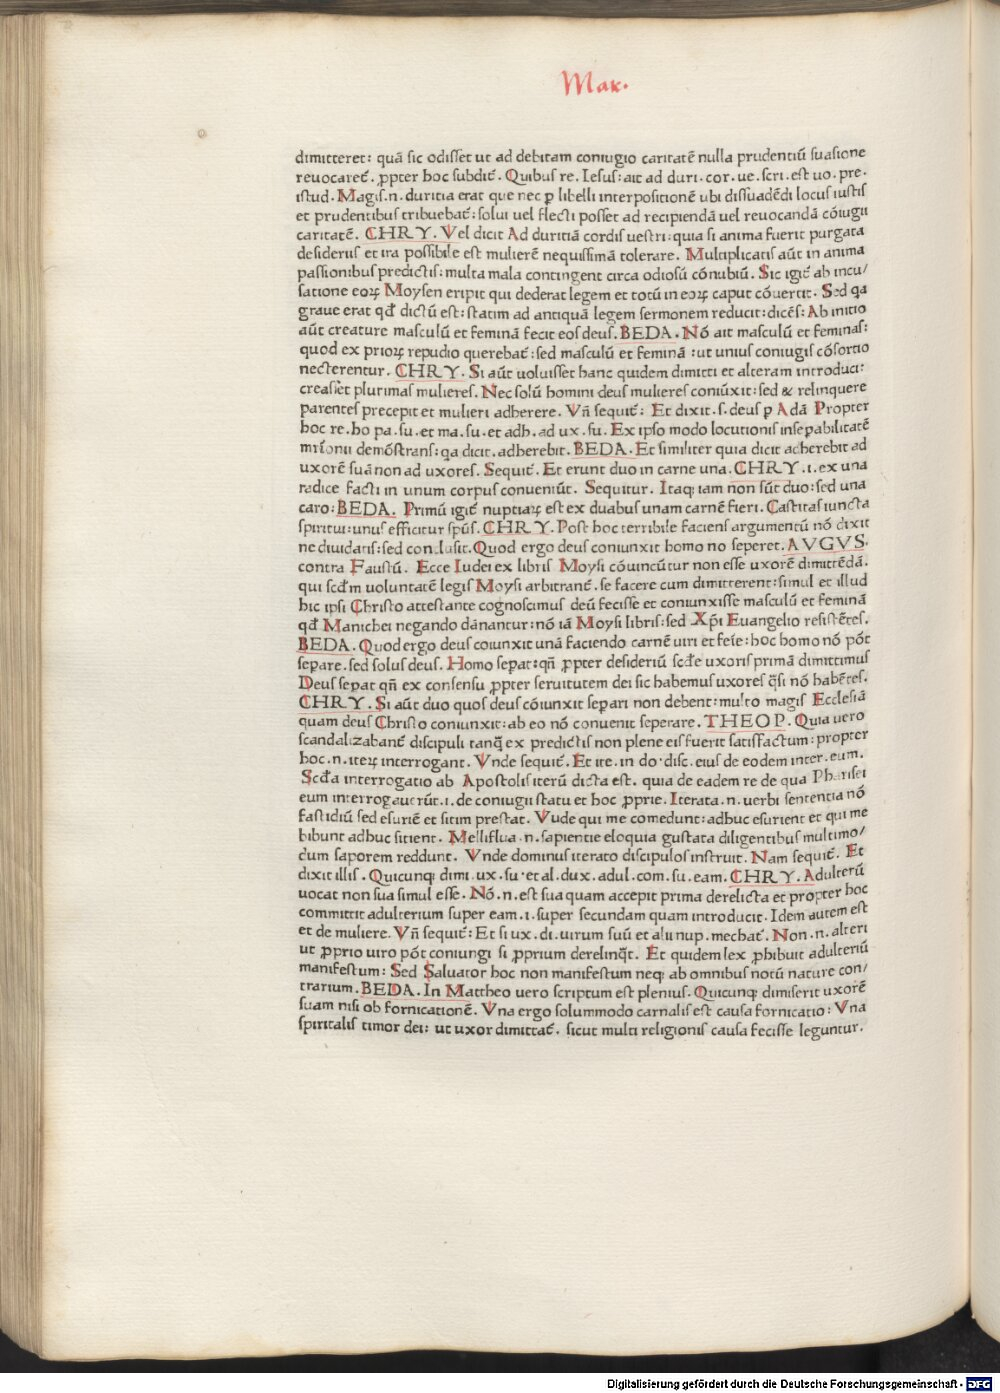 Mar.
dimitteret: quā sic odisset ut ad debitam coniugio caritatē nulla prudentiū suasione
reuocaret̄. ꝓpter hoc subdit̄. Quibus re. Iesus: ait ad duri. cor. ue. scri. est uo. pre.
istud. Magis. n. duritia erat que nec ꝑ libelli interpositionē ubi dissuadēdi locus iustis
et prudentibus tribuebat̄: solui uel flecti posset ad recipiendā uel reuocandā cōiugii
caritatē. CHRY. Vel dicit Ad duritiā cordis uestri: quia si anima fuerit purgata
desideriis et ira possibile est mulierē nequissimā tolerare. Multiplicatis aūt in anima
passionibus predictis: multa mala contingent circa odiosū cōnubiū. Sic igit̄ ab incu/
satione eoꝝ Moysen eripit qui dederat legem et totū in eoꝝ caput cōuertit. Sed qa
graue erat qđ dictū est: statim ad antiquā legem sermonem reducit: dicēs: Ab initio
aūt creature masculū et feminā fecit eos deus. BEDA. Nō ait masculū et feminas:
quod ex prioꝝ repudio querebat̄: sed masculū et feminā : ut unius coniugis cōsortio
necterentur. CHRY. Si aūt uoluisset hanc quidem dimitti et alteram introduci:
creasset plurimas mulieres. Nec solū homini deus mulieres coniūxit: sed & relinquere
parentes precepit et mulieri adherere. Vn̄ sequit̄: Et dixit. s. deus ꝑ Adā Propter
hoc re. ho pa. su. et ma. su. et adh. ad ux. su. Ex ipso modo locutionis insepabilitatē
mr̄ionii demōstrans: qa dicit. adherebit. BEDA. Et similiter quia dicit adherebit ad
uxorē suā non ad uxores. Sequit̄. Et erunt duo in carne una. CHRY. i. ex una
radice facti in unum corpus conueniūt. Sequitur. Itaq; iam non sūt duo: sed una
caro: BEDA. Primū igit̄ nuptiaꝝ est ex duabus unam carnē fieri. Castitas iuncta
spiritui: unus efficitur sp̄us. CHRY. Post hoc terribile faciens argumentū nō dixit
ne diuidatis: sed conclusit. Quod ergo deus coniunxit homo no seperet. AVGVS.
contra Faustū. Ecce Iudei ex libris Moysi cōuincūtur non esse uxorē dimittēdā.
qui scd̄m uoluntatē legis Moysi arbitrant̄. se facere cum dimitterent: simul et illud
hic ipsi Christo attestante cognoscimus deū fecisse et coniunxisse masculū et feminā
qđ Manichei negando dānantur: nō iā Moysi libris: sed Xp̄i Euangelio resistētes.
BEDA. Quod ergo deus coiunxit unā faciendo carnē uiri et feīe: hoc homo nō pōt
separe. sed solus deus. Homo sepat: qn̄ ꝓpter desideriū scd̄e uxoris primā dimittimus
Deus sepat qn̄ ex consensu ꝓpter seruitutem dei sic habemus uxores q̄si nō habētes.
CHRY. Si aūt duo quos deus cōiunxit separi non debent: multo magis Ecclesiā
quam deus Christo coniunxit: ab eo nō conuenit seperare. THEOP. Quia uero
scandalizabant̄ discipuli tanq̄ ex predictis non plene eis fuerit satisfactum: propter
hoc. n. iteꝝ interrogant. Vnde sequit̄. Et ite. in do. disc. eius de eodem inter. eum.
Scd̄a interrogatio ab Apostolis iterū dicta est. quia de eadem re de qua Pharisei
eum interrogauerūt. i. de coniugii statu et hoc ꝓprie. Iterata. n. uerbi sententia nō
fastidiū sed esuriē et sitim prestat. Vude qui me comedunt: adhuc esurient et qui me
bibunt adhuc sitient. Melliflua. n. sapientie eloquia gustata diligentibus multimo/
dum saporem reddunt. Vnde dominus iterato discipulos instruit. Nam sequit̄. Et
dixit illis. Quicunq; dimi. ux. su. et al. dux. adul. com. su. eam. CHRY. Adulterū
uocat non sua simul esse. Nō. n. est sua quam accepit prima derelicta et propter hoc
committit adulterium super eam. i. super secundam quam introducit. Idem autem est
et de muliere. Vn̄ sequit̄: Et si ux. di. uirum suū et alii nup. mechat̄. Non. n. alteri
ut ꝓprio uiro pōt coniungi si ꝓprium derelinq̄t. Et quidem lex ꝓhibuit adulteriū
manifestum: Sed Saluator hoc non manifestum neq; ab omnibus notū nature con/
trarium. BEDA. In Mattheo uero scriptum est plenius. Quicunq; dimiserit uxorē
suam nisi ob fornicationē. Vna ergo solummodo carnalis est causa fornicatio: Vna
spiritalis timor dei: ut uxor dimittat̄. sicut multi religionis causa fecisse leguntur.
Digitalisierung gefördert durch die Deutsche Forschungsgemeinschaft - DFG